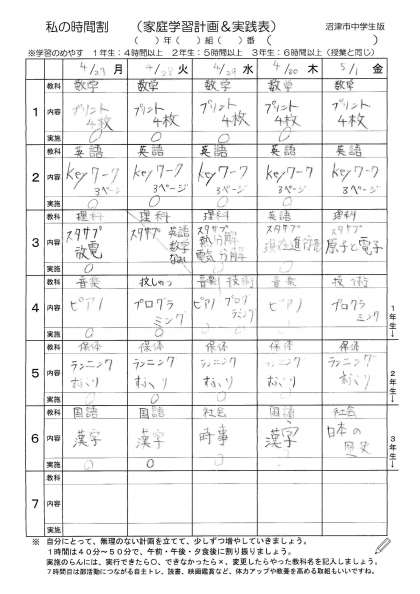 私の時間割 (家庭学習計画&実践表) 沼津市中学生版
( )年( )組( )番 ( )
※学習のめやす 1年生:4時間以上 2年生:5時間以上 3年生:6時間以上(授業と同じ)
4/27 月 4/28 火 4/29 水 4/30 木 5/1 金
1
教科 数学 数学 数学 数学 数学
内容 プリント プリント プリント プリント プリント
4枚 4枚 4枚 4枚 4枚
実施 ○ ○ ○ ○ ○
2
教科 英語 英語 英語 英語 英語
内容 keyワーク keyワーク keyワーク keyワーク keyワーク
3ページ 3ページ 3ページ 3ページ 3ページ
実施 ○ ○ ○ ○ ○
3
教科 理科 理科 理科 英語 理科
内容 スタサプ スタサプ 英語 スタサプ スタサプ スタサプ
放電 数学 熱分解 現在進行形 原子と電子
電気分解
実施 ○
4
教科 音楽 技しゅつ 音楽 技術 音楽 技術
内容 ピアノ プログラ ピアノ プログラミング ピアノ プログラ
ミング ミング
実施 ○ ○ ○ ○
1年生↓
5
教科 保体 保体 保体 保体 保体
内容 ランニング ランニング ランニング ランニング ランニング
実施 ○ ○ ○ ○ ○
2年生↓
6
教科 国語 国語 社会 国語 社会
内容 漢字 漢字 時事 漢字 日本の
歴史
実施 ○ ○
3年生↓
7
教科
内容
実施
※ 自分にとって、無理のない計画を立てて、少しずつ増やしていきましょう。
1時間は40分〜50分で、午前・午後・夕食後に割り振りましょう。
実施のらんには、実行できたら○、できなかったら×、変更したらやった教科名を記入しましょう。
7時間目は部活動につながる自主トレ、読書、映画鑑賞など、体力アップや教養を高める取組もいいですね。